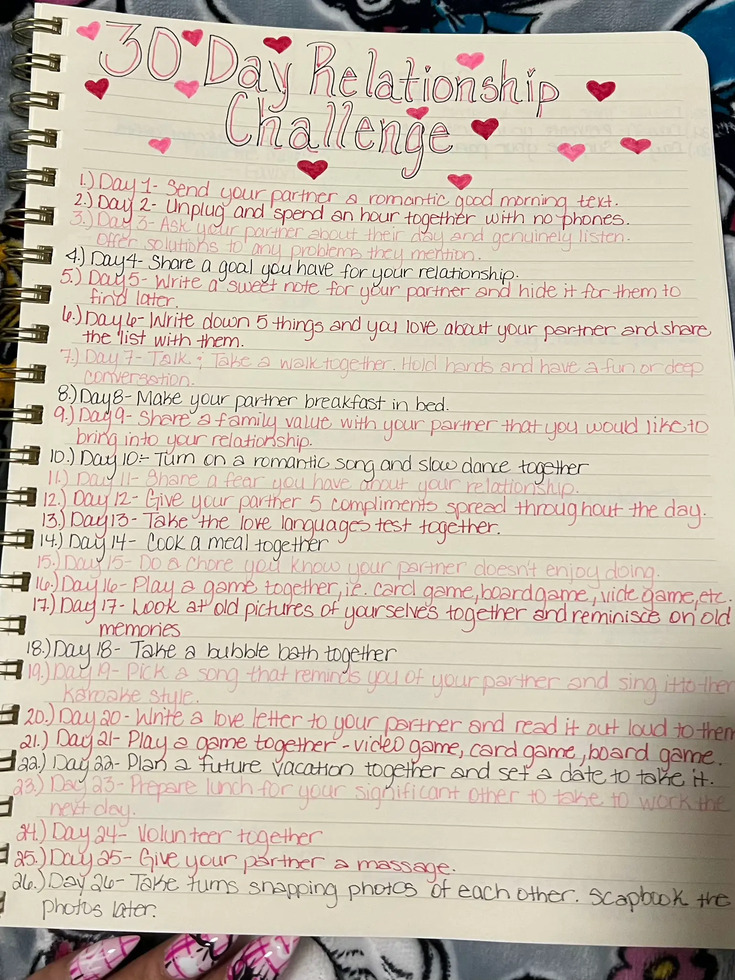 30 Day Relationship
Challenge
1.) Day 1- Send your partner a romantic good morning text.
2.) Day 2- Unplug and spend an hour together with no phones.
3.) Day 3- Ask your partner about their day and genuinely listen.
Offer solutions to any problems they mention.
4.) Day 4- Share a goal you have for your relationship.
5.) Day 5- Write a sweet note for your partner and hide it for them to
find later.
6.) Day 6- Write down 5 things and you love about your partner and share
the list with them.
7.) Day 7- Talk & Take a walk together. Hold hands and have a fun or deep
conversation.
8.) Day 8- Make your partner breakfast in bed.
9.) Day 9- Share a family value with your partner that you would like to
bring into your relationship.
10.) Day 10:- Turn on a romantic song and slow dance together
11.) Day 11- Share a fear you have about your relationship.
12.) Day 12- Give your partner 5 compliments spread throughout the day.
13.) Day 13- Take the love languages test together.
14.) Day 14- Cook a meal together
15.) Day 15- Do a chore you know your partner doesn't enjoy doing.
16.) Day 16- Play a game together, ie. card game, board game, vide game, etc.
17.) Day 17- Look at old pictures of yourselves together and reminisce on old
memories
18.) Day 18- Take a bubble bath together
19.) Day 19- Pick a song that reminds you of your partner and sing it to them
Karoake style.
20.) Day 20- Write a love letter to your partner and read it out loud to them
21.) Day 21- Play a game together - video game, card game, board game.
22.) Day 22- Plan a future vacation together and set a date to take it.
23.) Day 23- Prepare lunch for your significant other to take to work the
next day.
24.) Day 24- Volunteer together
25.) Day 25- Give your partner a massage.
26.) Day 26- Take turns snapping photos of each other. Scapbook the
photos later.